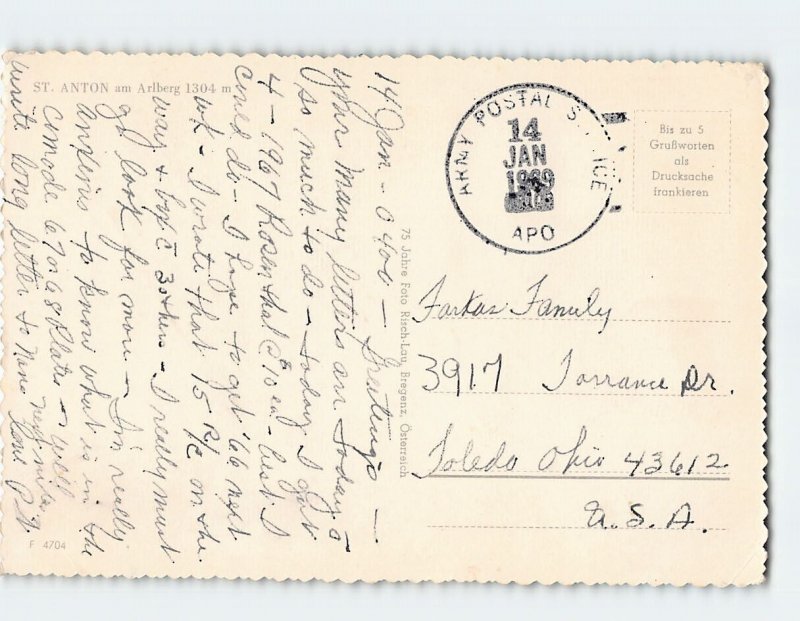 ST. ANTON am Arlberg 1304 m
14 Jan - 0400 - Greetings -
your many letters arr today -
so much to do - today I got
4 - 1967 Rosenthal @ 10 ea - best I
could do - I hope to get '66 next
wk - I wrote that 15 on the
way + 3 others - I really must
go look for more - I'm really
anxious to know what is in the
67 or 68 Plates - will
write long letter to Nana
Love
F 4704
75 Jahre Foto Risch-Lau, Bregenz, Österreich
ARMY POSTAL S ICE
14
JAN
1969
APO
Bis zu 5
Grußworten
als
Drucksache
frankieren
Farkas Family
3917 Torrance Dr.
Toledo Ohio 43612
U.S.A.